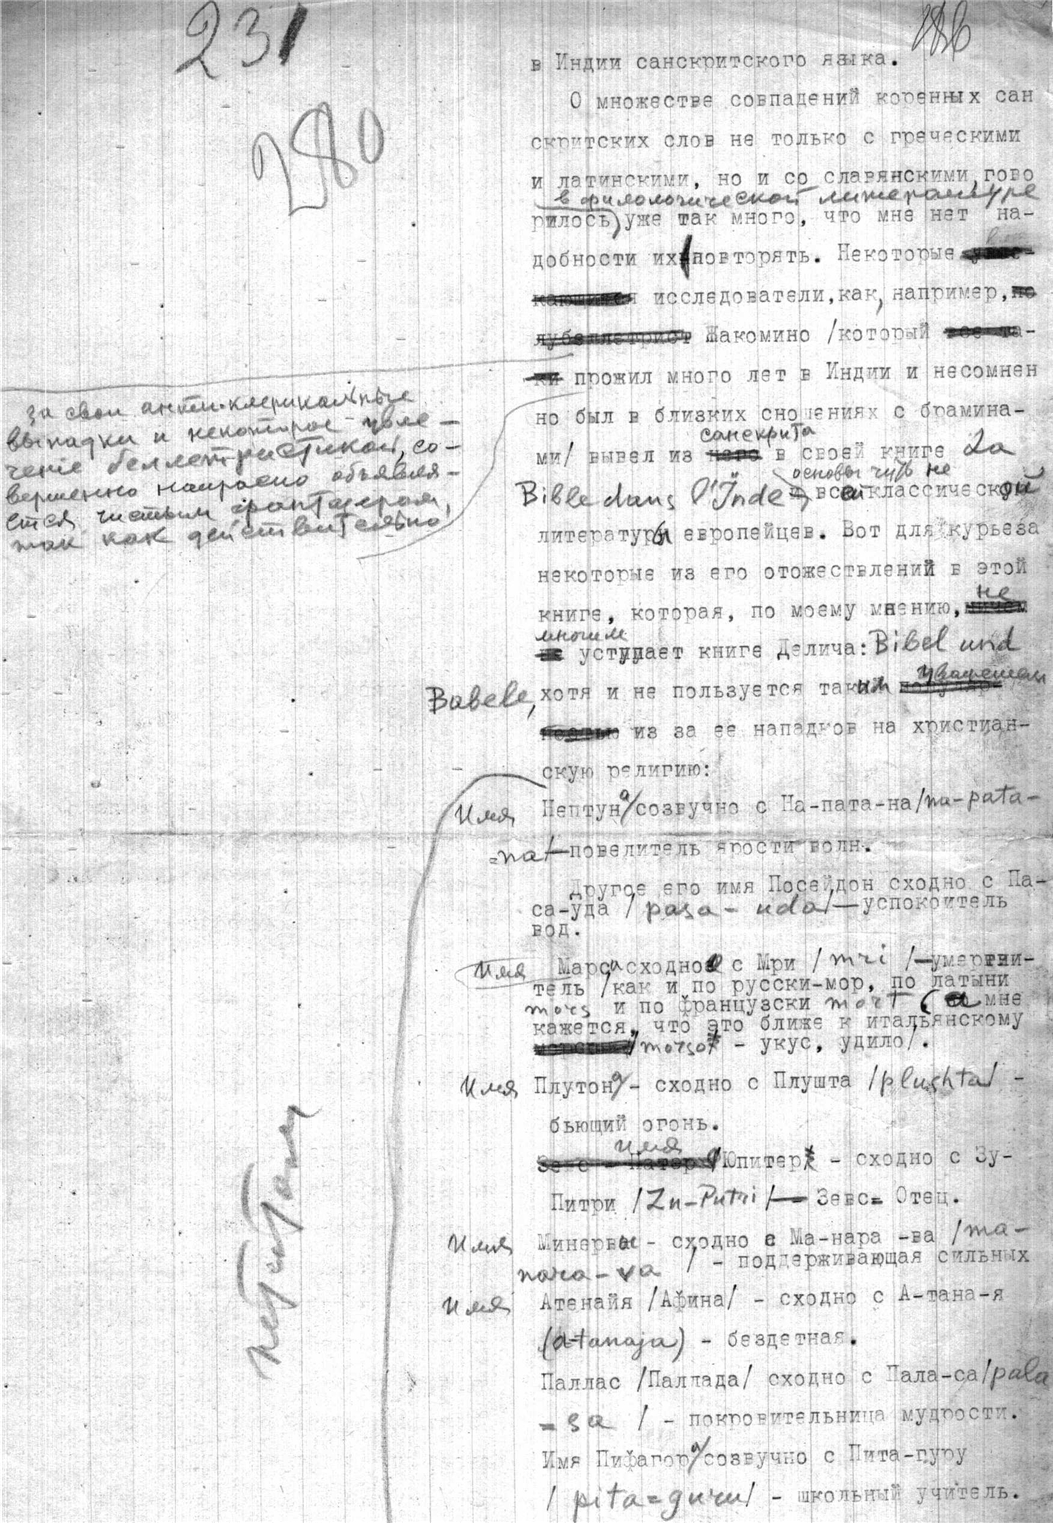 231
280
в Индии санскритского языка.
О множестве совпадений коренных сан
скритских слов не только с греческими
и латинскими, но и со славянскими, гово
в филологической литературе
рилось, уже так много, что мне нет на-
добности их повторять. Некоторые
исследователи, как, например,
Жакомино /который
прожил много лет в Индии и несомнен
но был в близких сношениях с брамина-
санскрита
ми/ вывел из в своей книге La
основы чуть не
Bible dans l'Inde, всей классической
литературы европейцев. Вот для курьеза
некоторые из его отожествлений в этой
книге, которая, по моему мнению, не
многим
уступает книге Делича: Bibel und
уважением
Babele, хотя и не пользуется таким
из за ее нападков на христиан-
скую религию:
за свои анти-клерикальные
выпадки и некоторое увле-
чение беллетристикой, со-
вершенно напрасно объявля-
ется чистым фантазером,
так как действительно
Имя Нептуна/созвучно с На-пата-на/na-pata-
=na/—повелитель ярости волн.
Другое его имя Посейдон сходно с Па-
са-уда /pasa-uda/—успокоитель
вод.
Имя Марса сходно с Мри /mri/—умертви-
тель /как и по русски-мор, по латыни
mors и по французски mort (а мне
кажется, что это ближе к итальянскому
/morso/ - укус, удило/.
Имя Плутона - сходно с Плушта /plushta/ -
бьющий огонь.
имя
Юпитер - сходно с Зу-
Питри /Zu-Pitri/— Зевс= Отец.
Имя Минервы - сходно с Ма-нара -ва /ma-
nara-va / - поддерживающая сильных
Имя Атенайя /Афина/ - сходно с А-тана-я
(a-tanaja) - бездетная.
Паллас /Паллада/ сходно с Пала-са/pala
=sa / - покровительница мудрости.
Имя Пифагора/созвучно с Пита-гуру
/ pita=guru/ - школьный учитель.
петитом